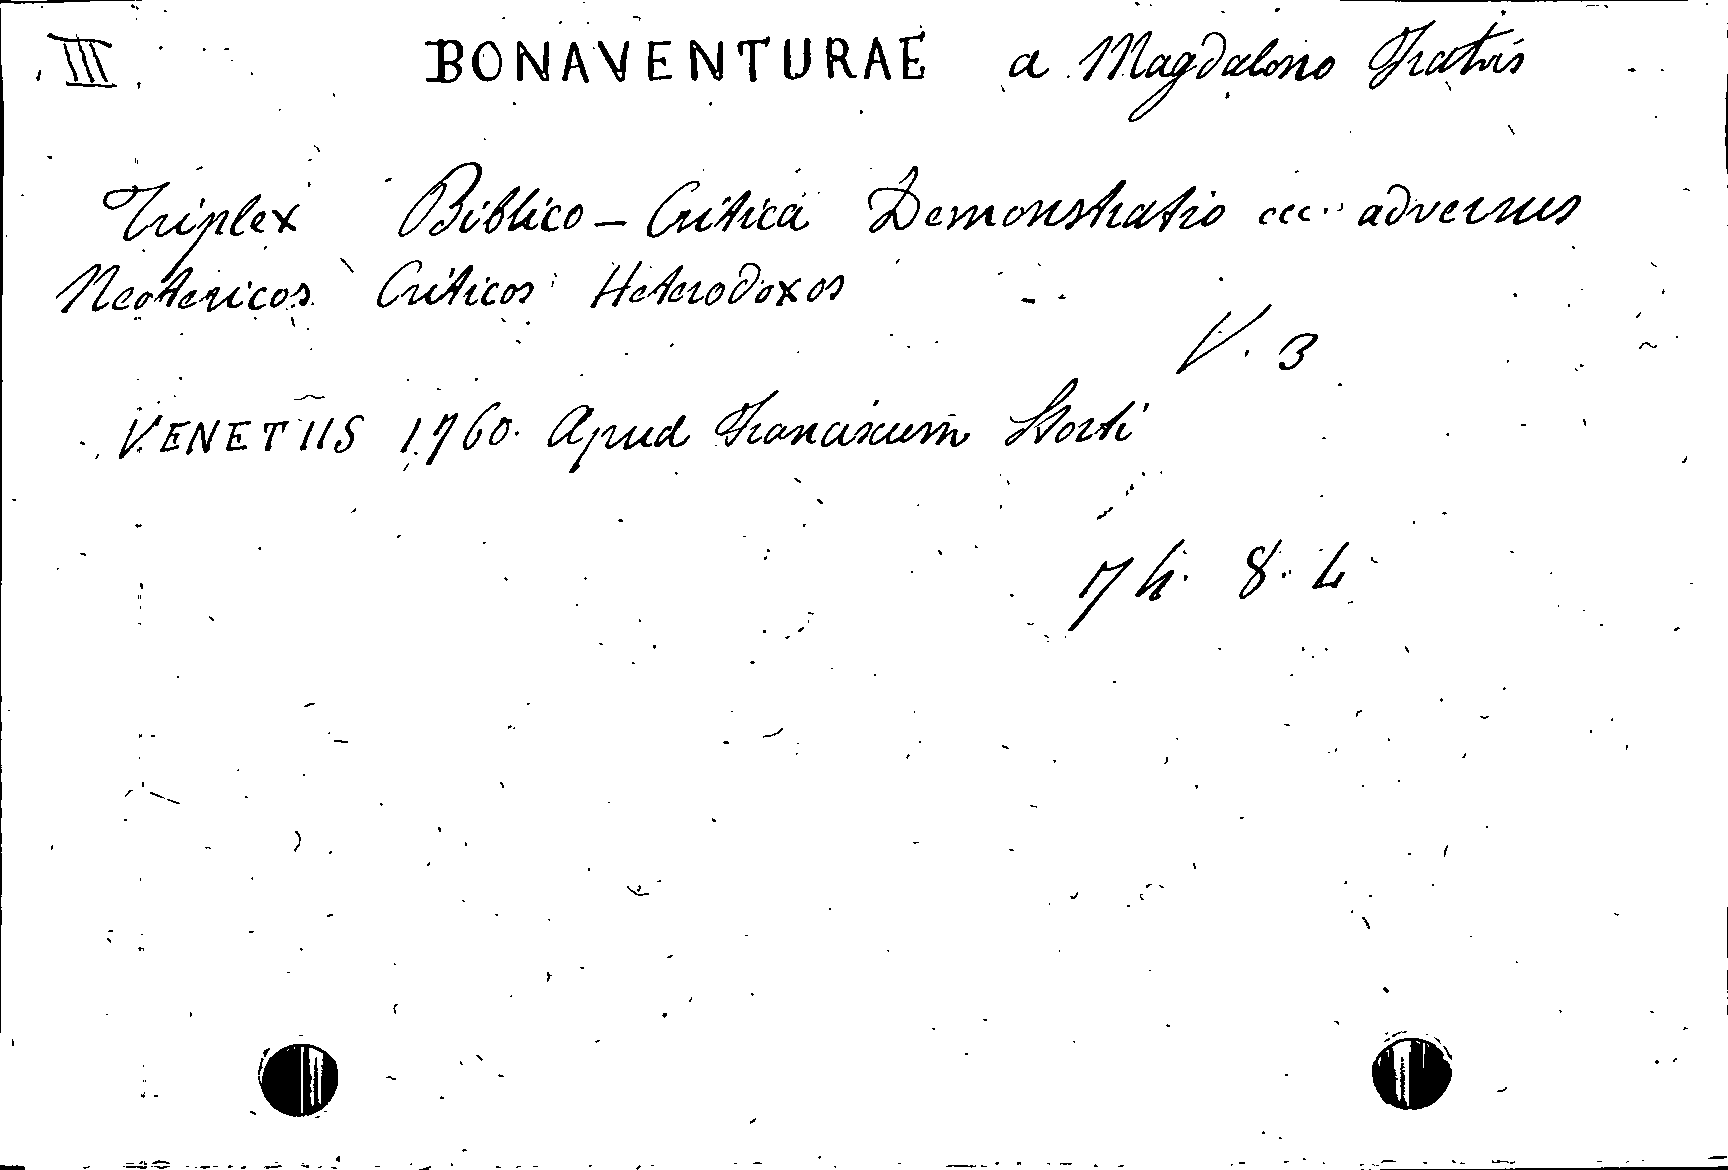 III BONAVENTURAE a Magdalono Fratris
Triplex Biblico - Critica Demonstratio ecc.. adversus
Neotericos Criticos Heterodoxos
V. 3
VENETIIS 1760. Apud Franciscum Storti
74. 8. 4